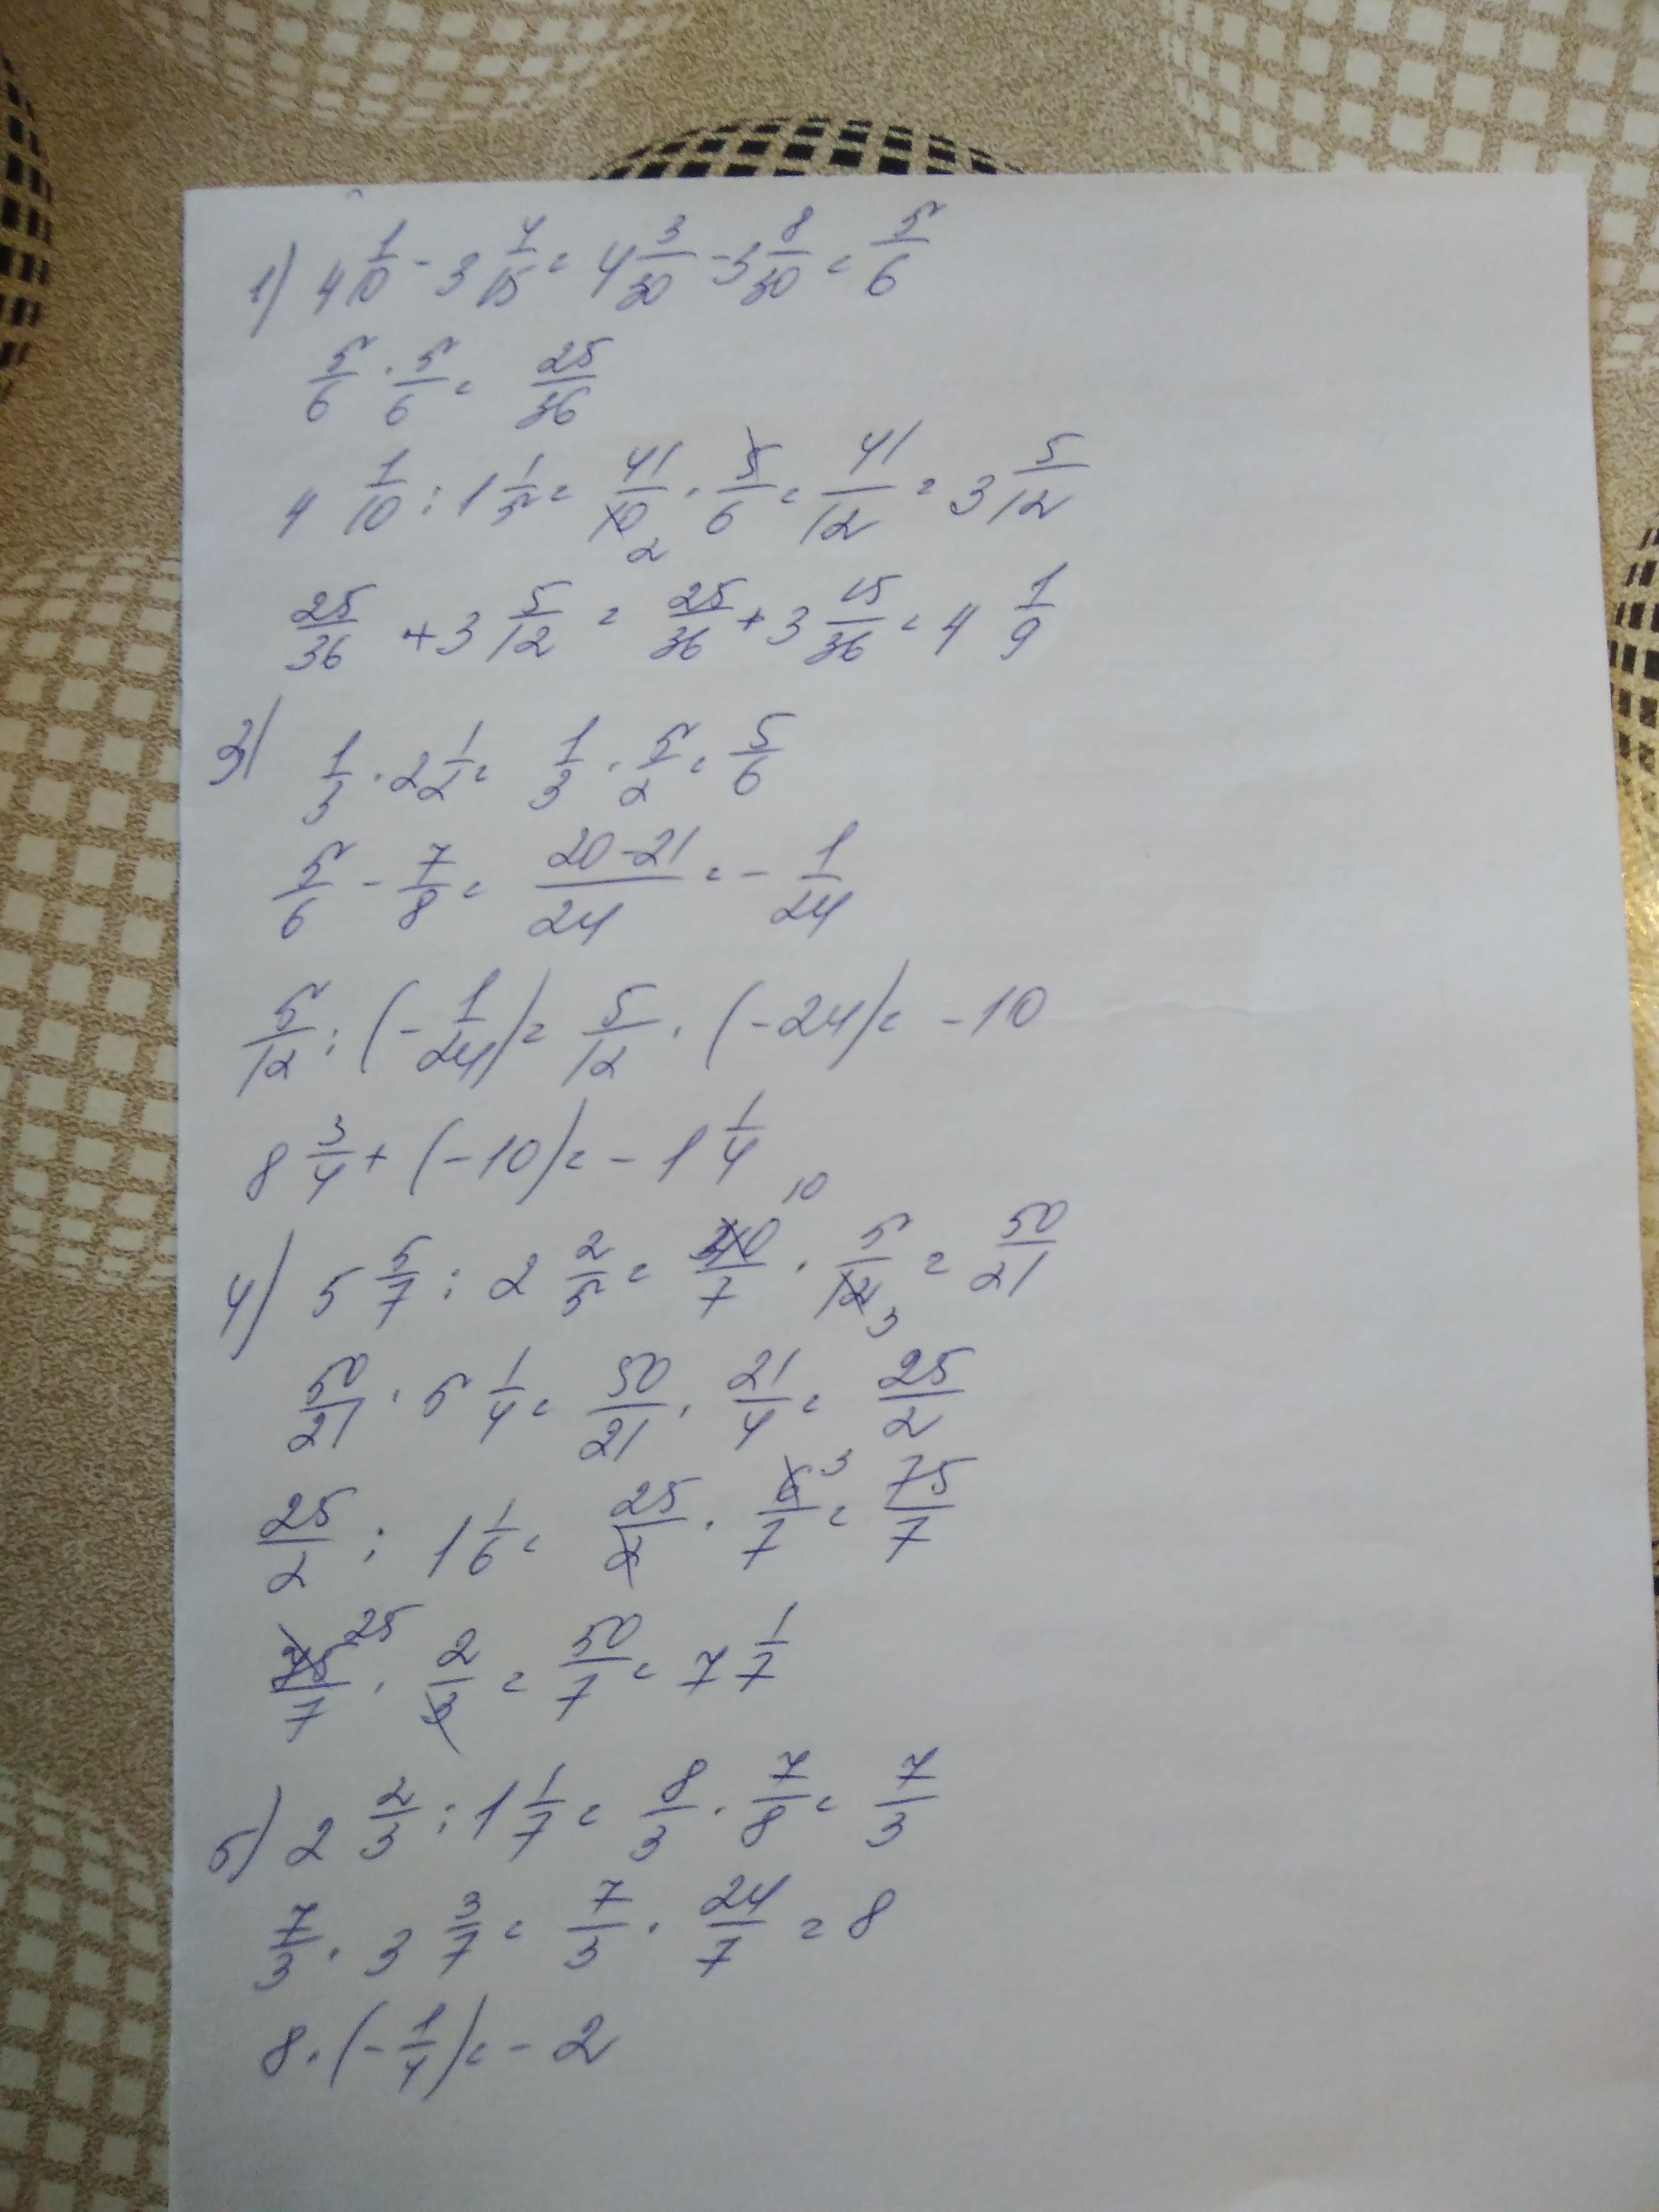 1) 4 1/10 - 3 4/15 = 4 3/30 - 3 8/30 = 5/6
5/6 · 5/6 = 25/36
4 1/10 : 1 1/5 = 41/10 2 · 5/6 = 41/12 = 3 5/12
25/36 + 3 5/12 = 25/36 + 3 15/36 = 4 1/9
3) 1/3 · 2 1/2 = 1/3 · 5/2 = 5/6
5/6 - 7/8 = 20-21/24 = - 1/24
5/12 : (- 1/24) = 5/12 · (-24) = -10
8 3/4 + (-10) = -1 1/4
4) 5 5/7 : 2 2/5 = 40 10/7 · 5/12 3 = 50/21
50/21 · 5 1/4 = 50/21 · 21/4 = 25/2
25/2 : 1 1/6 = 25/2 · 6 3/7 = 75/7
75 25/7 · 2/3 = 50/7 = 7 1/7
5) 2 2/3 : 1 1/7 = 8/3 · 7/8 = 7/3
7/3 · 3 3/7 = 7/3 · 24/7 = 8
8 · (- 1/4) = -2